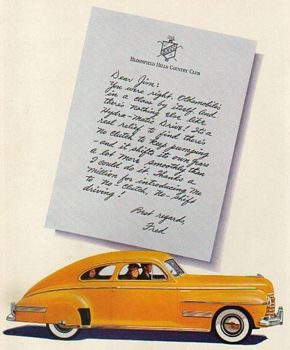 Bloomfield Hills Country Club
Dear Jim:
You were right. Oldsmobile's
in a class by itself. And
there's nothing else like
Hydra-Matic Drive! It's a
real relief to find there's
No Clutch to keep pumping
- and it shifts its own gears
a lot more smoothly than
I could do it. Thanks a
million for introducing me
to No-Clutch, No-Shift
driving!
Best regards,
Fred